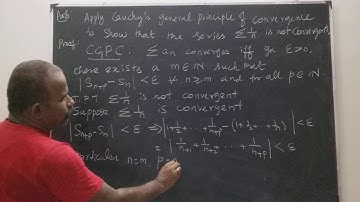 Prob: Apply Cauchy's general principle of convergence
to Show that the series Σ 1/n is not convergent.
Proof: C G P C: Σ an converges iff ga ε>0,
there exists a m∈N such that
|Sn+p - Sn| < ε ∀ n≥m and for all p∈N.
T.P.T Σ 1/n is not convergent
Suppose Σ 1/n is convergent
|Sn+p - Sn| < ε ⇒ |1+1/2+...+1/n+p - (1+1/2+...+1/n)| < ε
= |1/n+1 + 1/n+2 + ... + 1/n+p| < ε
particular n=m, p=